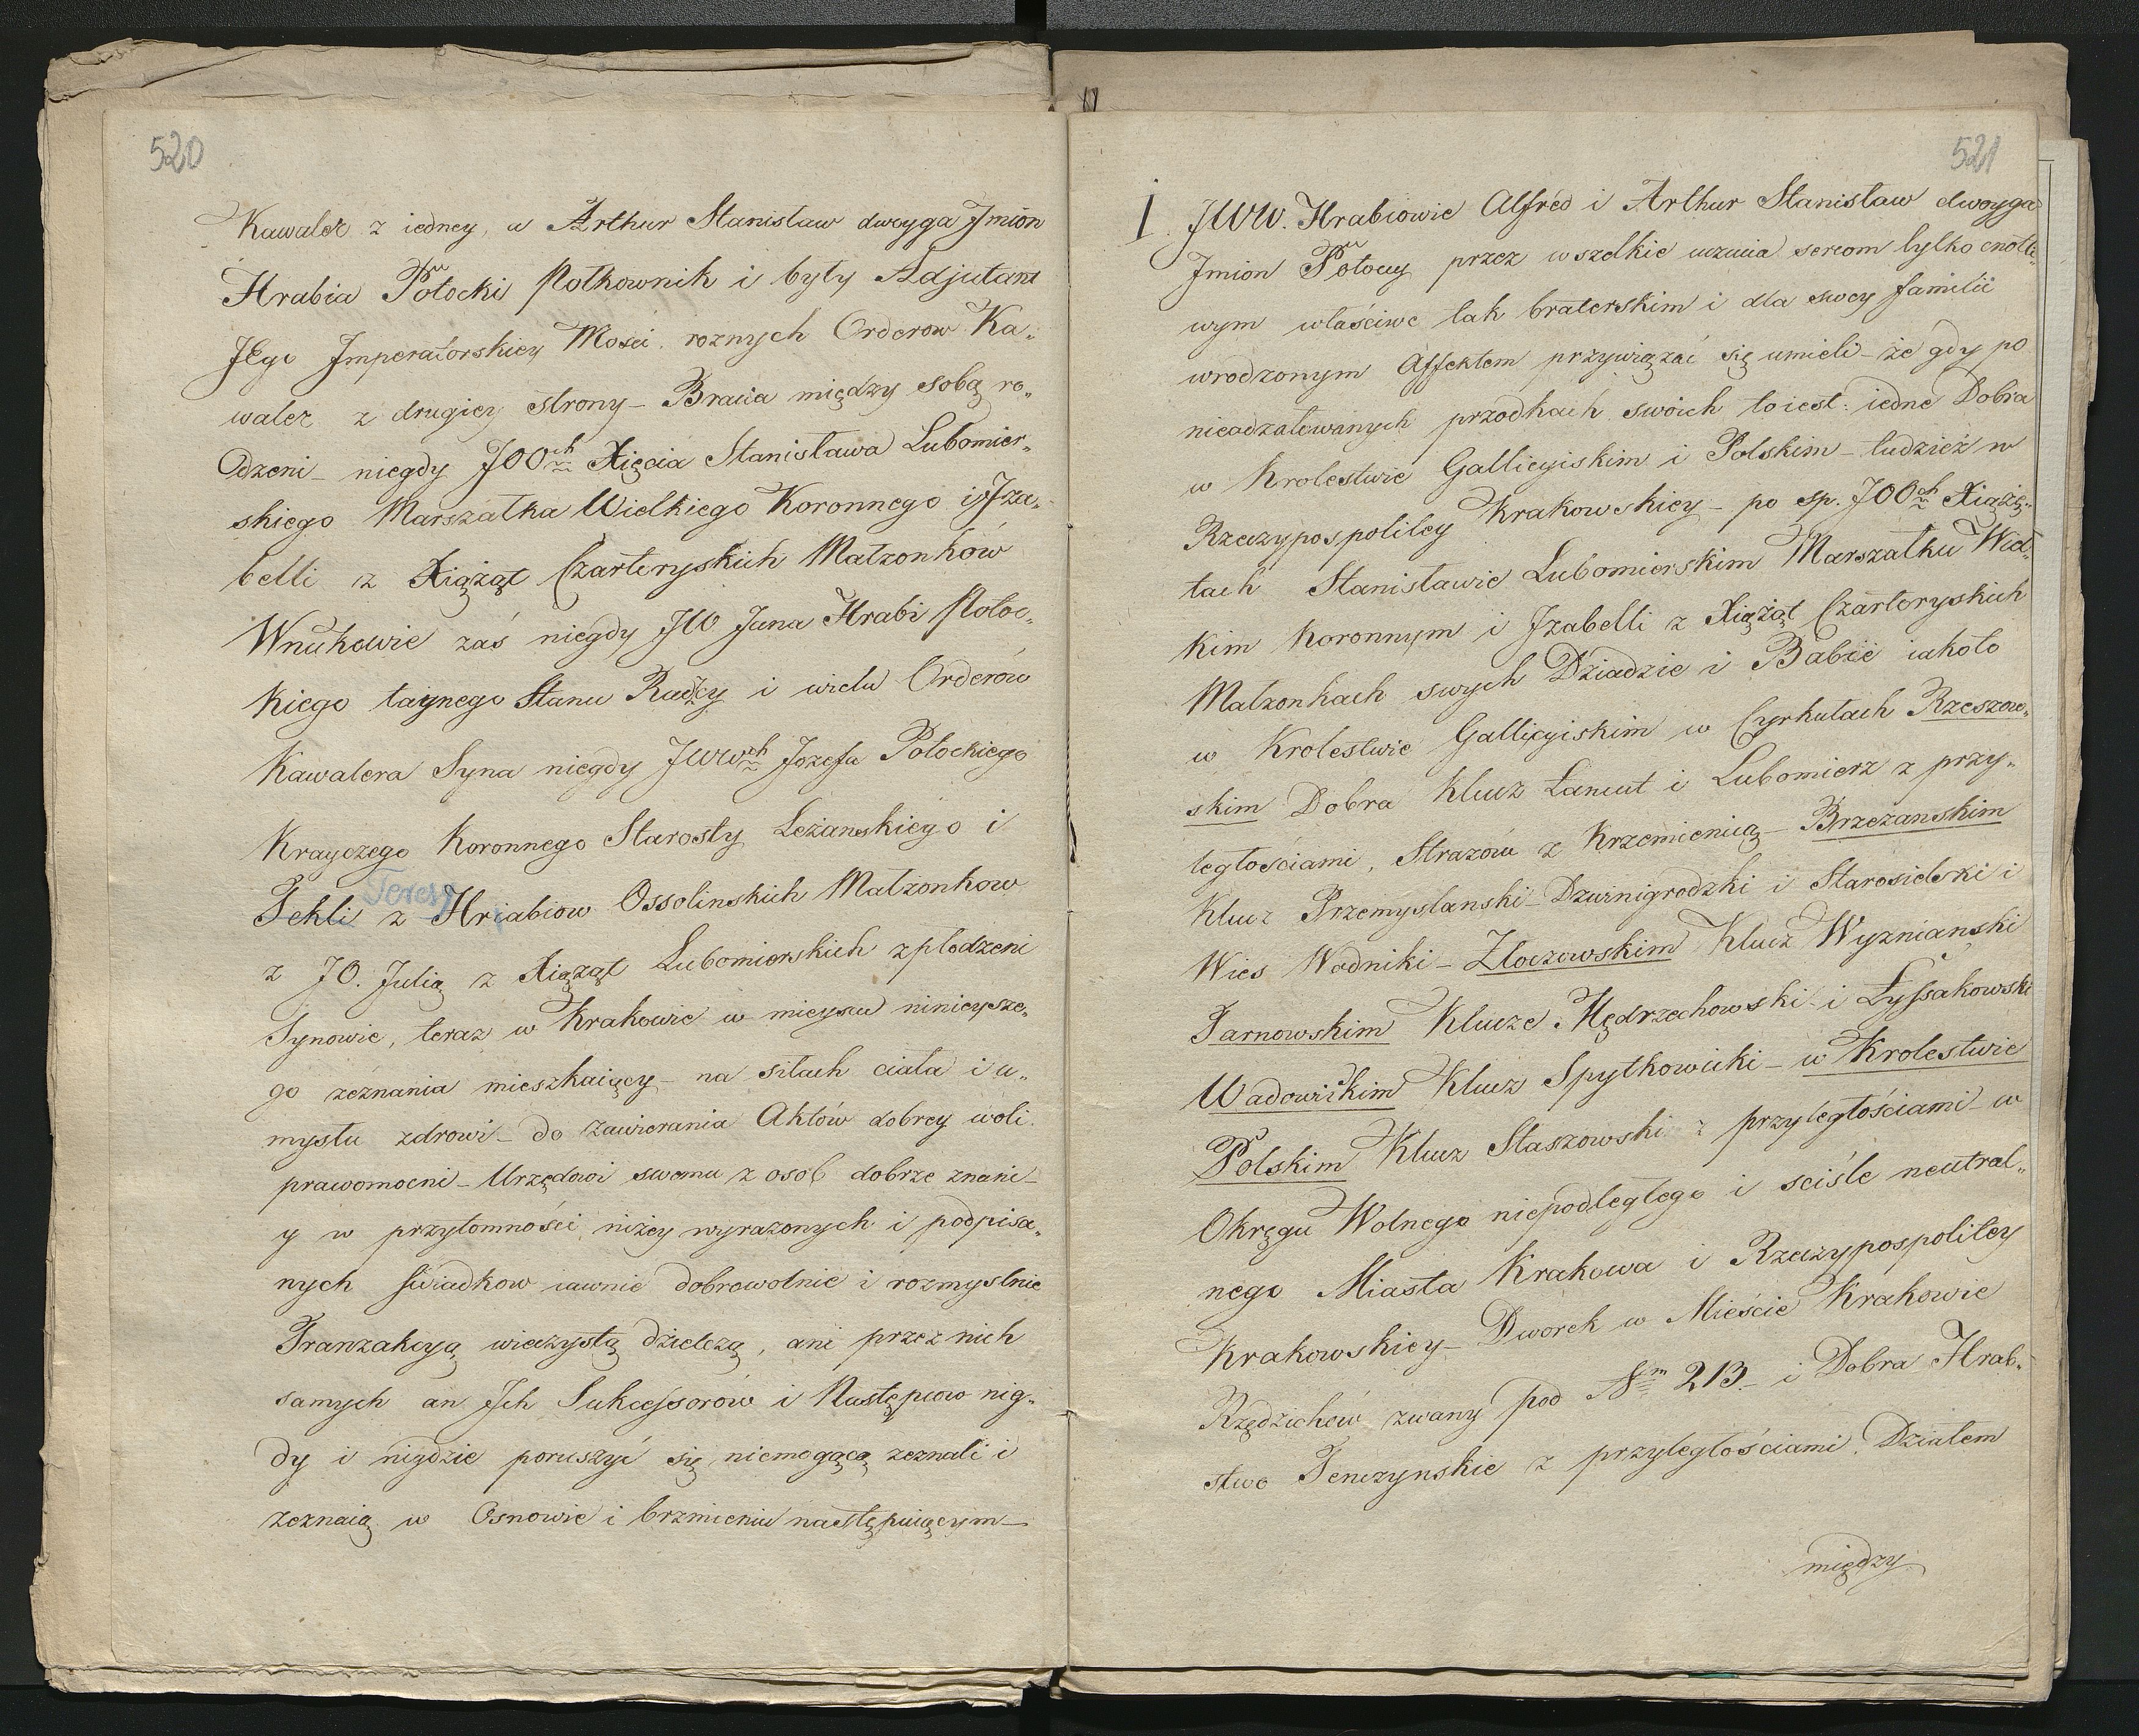 520
Kawaler z iedney, a Arthur Stanisław dwoyga Jmion
Hrabia Potocki Półkownik i były Adjutant
JEgo Jmperatorskiey Mości roznych Orderow Ka„
waler z drugiey strony – Bracia między sobą ro„
dzeni – niegdy JOOch Xięcia Stanisława Lubomier„
skiego Marszałka Wielkiego Koronnego i Jza„
belli z Xiąząt Czartoryskich Małzonków
Wnukowie zaś niegdy JW Jana Hrabi Potoc„
kiego taynego Stanu Radzcy i wielu Orderów
Kawalera Syna niegdy JWWch Jozefa Potockiego
Krayczego Koronnego Starosty Leżanskiego i
Teresy
Tekli z Hrabiow Ossolinskich Małzonkow
z JO. Julią z Xiąząt Lubomierskich zpłodzeni
Synowie, teraz w Krakowie w mieyscu ninieysze„
go zeznania mieszkaiący – na siłach ciała i u„
mysłu zdrowi – do zawierania Aktów dobrey woli
prawomocni – Urzędowi swemu z osob dobrze znani –
y w przytomności niżey wyrazonych i podpisa„
nych swiadkow iawnie dobrowolnie i rozmyslnie
Tranzakcyą wieczystą działczą, ani przez nich
samych an Jch Sukcessorów i Następcow nig„
dy i nigdzie poruszyć się niemogącą zeznali i
zeznaią w Osnowie i brzmieniu następuiącym –
521
1. JWW. Hrabiowie Alfréd i Arthur Stanisław dwoyga
Jmion Potoccy przez wszelkie uczucia sercom tylko cnotli„
wym właściwe tak braterskim i dla swey familii
wrodzonym Affektem przywiązać się umieli – że gdy po
nieodżałowanych przodkach swoich toiest: iedne Dobra
w Krolestwie Gallicyiskim i Polskim – tudzież w
Rzeczypospolitey Krakowskiey – po sp. JOOch Xiążę„
tach Stanisławie Lubomierskim Marszałku Wiel„
kim Koronnym i Jzabelli z Xiążąt Czartoryskich
Małzonkach swych Dziadzie i Babie iakoto
w Krolestwie Gallicyiskim w Cyrkułach Rzeszow„
skim Dobra Klucz Łancut i Lubomierz z przy„
ległościami, Strazów z Krzemienicą – Brzezanskim
Klucz Przemyslanski – Dzwinigrodzki i Starosielski i
Wies Wodniki – Złoczowskim Klucz Wyznianski
Tarnowskim Klucze Mędrzechowski i Łyssakowski
Wadowickim Klucz Spytkowicki – w Krolestwie
Polskim Klucz Staszowski z przyległościami – w
Okręgu Wolnego niepodległego i sciśle neutral„
nego Miasta Krakowa i Rzeczypospolitey
Krakowskiey – Dworek w Mieście Krakowie
Rzędzichów zwany pod Nm 213. – i Dobra Hrab„
stwo Tenczynskie z przyległościami. Działem
między